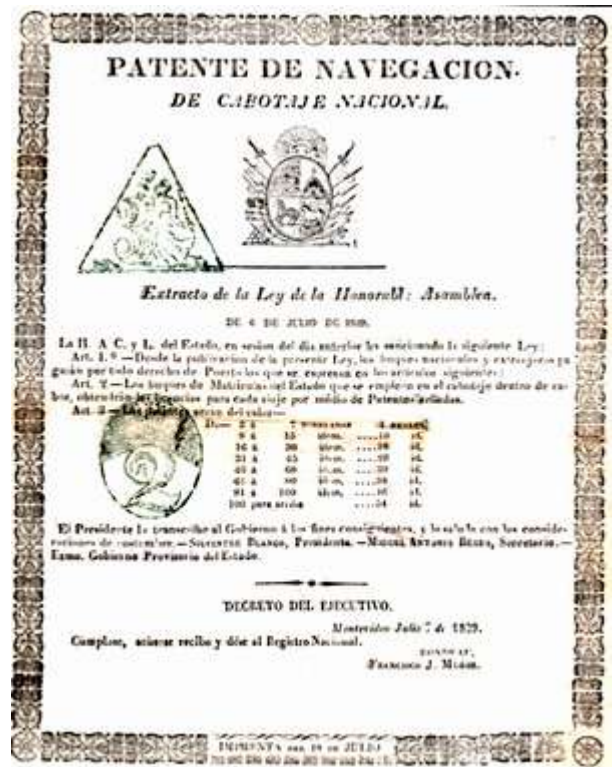 PATENTE DE NAVEGACION.
DE CABOTAJE NACIONAL.
Extracto de la Ley de la Honorabl: Asamblea.
DE 6 DE JULIO DE 1829.
La H. A C. y L. del Estado, en sesion del dia anterior ha sancionado la siguiente Ley:
Art. 1.º —Desde la publicacion de la presente Ley, los buques nacionales y extrangeros pa
garán por todo derecho de Puerto los que se expresan en los articulos siguientes:
Art. 2 —Los buques de Matricula del Estado que se empleen en el cabotaje dentro de ca-
bos, obtendrán las licencias para cada viaje por medio de Patentes selladas.
Art. 3 —Las patentes seran del valor—
De— 3 á 7 4
9 á 15 idem. ....10 id.
16 á 30 idem. id.
31 á 45 idem. id.
60 idem. id.
80 idem. id.
81 á 100 idem. id.
100 para arriba id.
El Presidente la transcribe al Gobierno á los fines consiguientes, y le saluda con las conside-
raciones de costumbre.—Silvestre Blanco, Presidente.—Miguel Antonio Berro, Secretario.—
Exmo. Gobierno Provisorio del Estado.
DECRETO DEL EJECUTIVO.
Montevideo Julio 7 de 1829.
Cumplase, acúsese recibo y dése al Registro Nacional.
RONDEAU,
Francisco J. Muñoz.
IMPRENTA DEL 18 DE JULIO